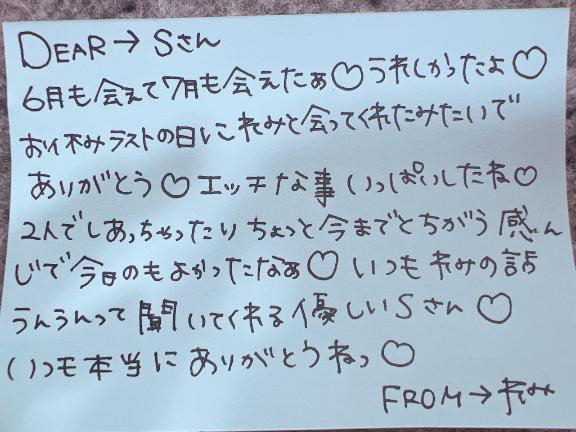 DEAR→Sさん
6月も会えて7月も会えたぁ♡うれしかったよ♡
お休みラストの日にれみと会ってくれたみたいで
ありがとう♡エッチな事いっぱいしたね♡
2人でしあっちゃったりちょっと今までとちがう感ん
じで今日のもよかったなぁ♡いつもれみの話
うんうんって聞いてくれる優しいSさん♡
いつも本当にありがとうねっ♡
FROM→れみ